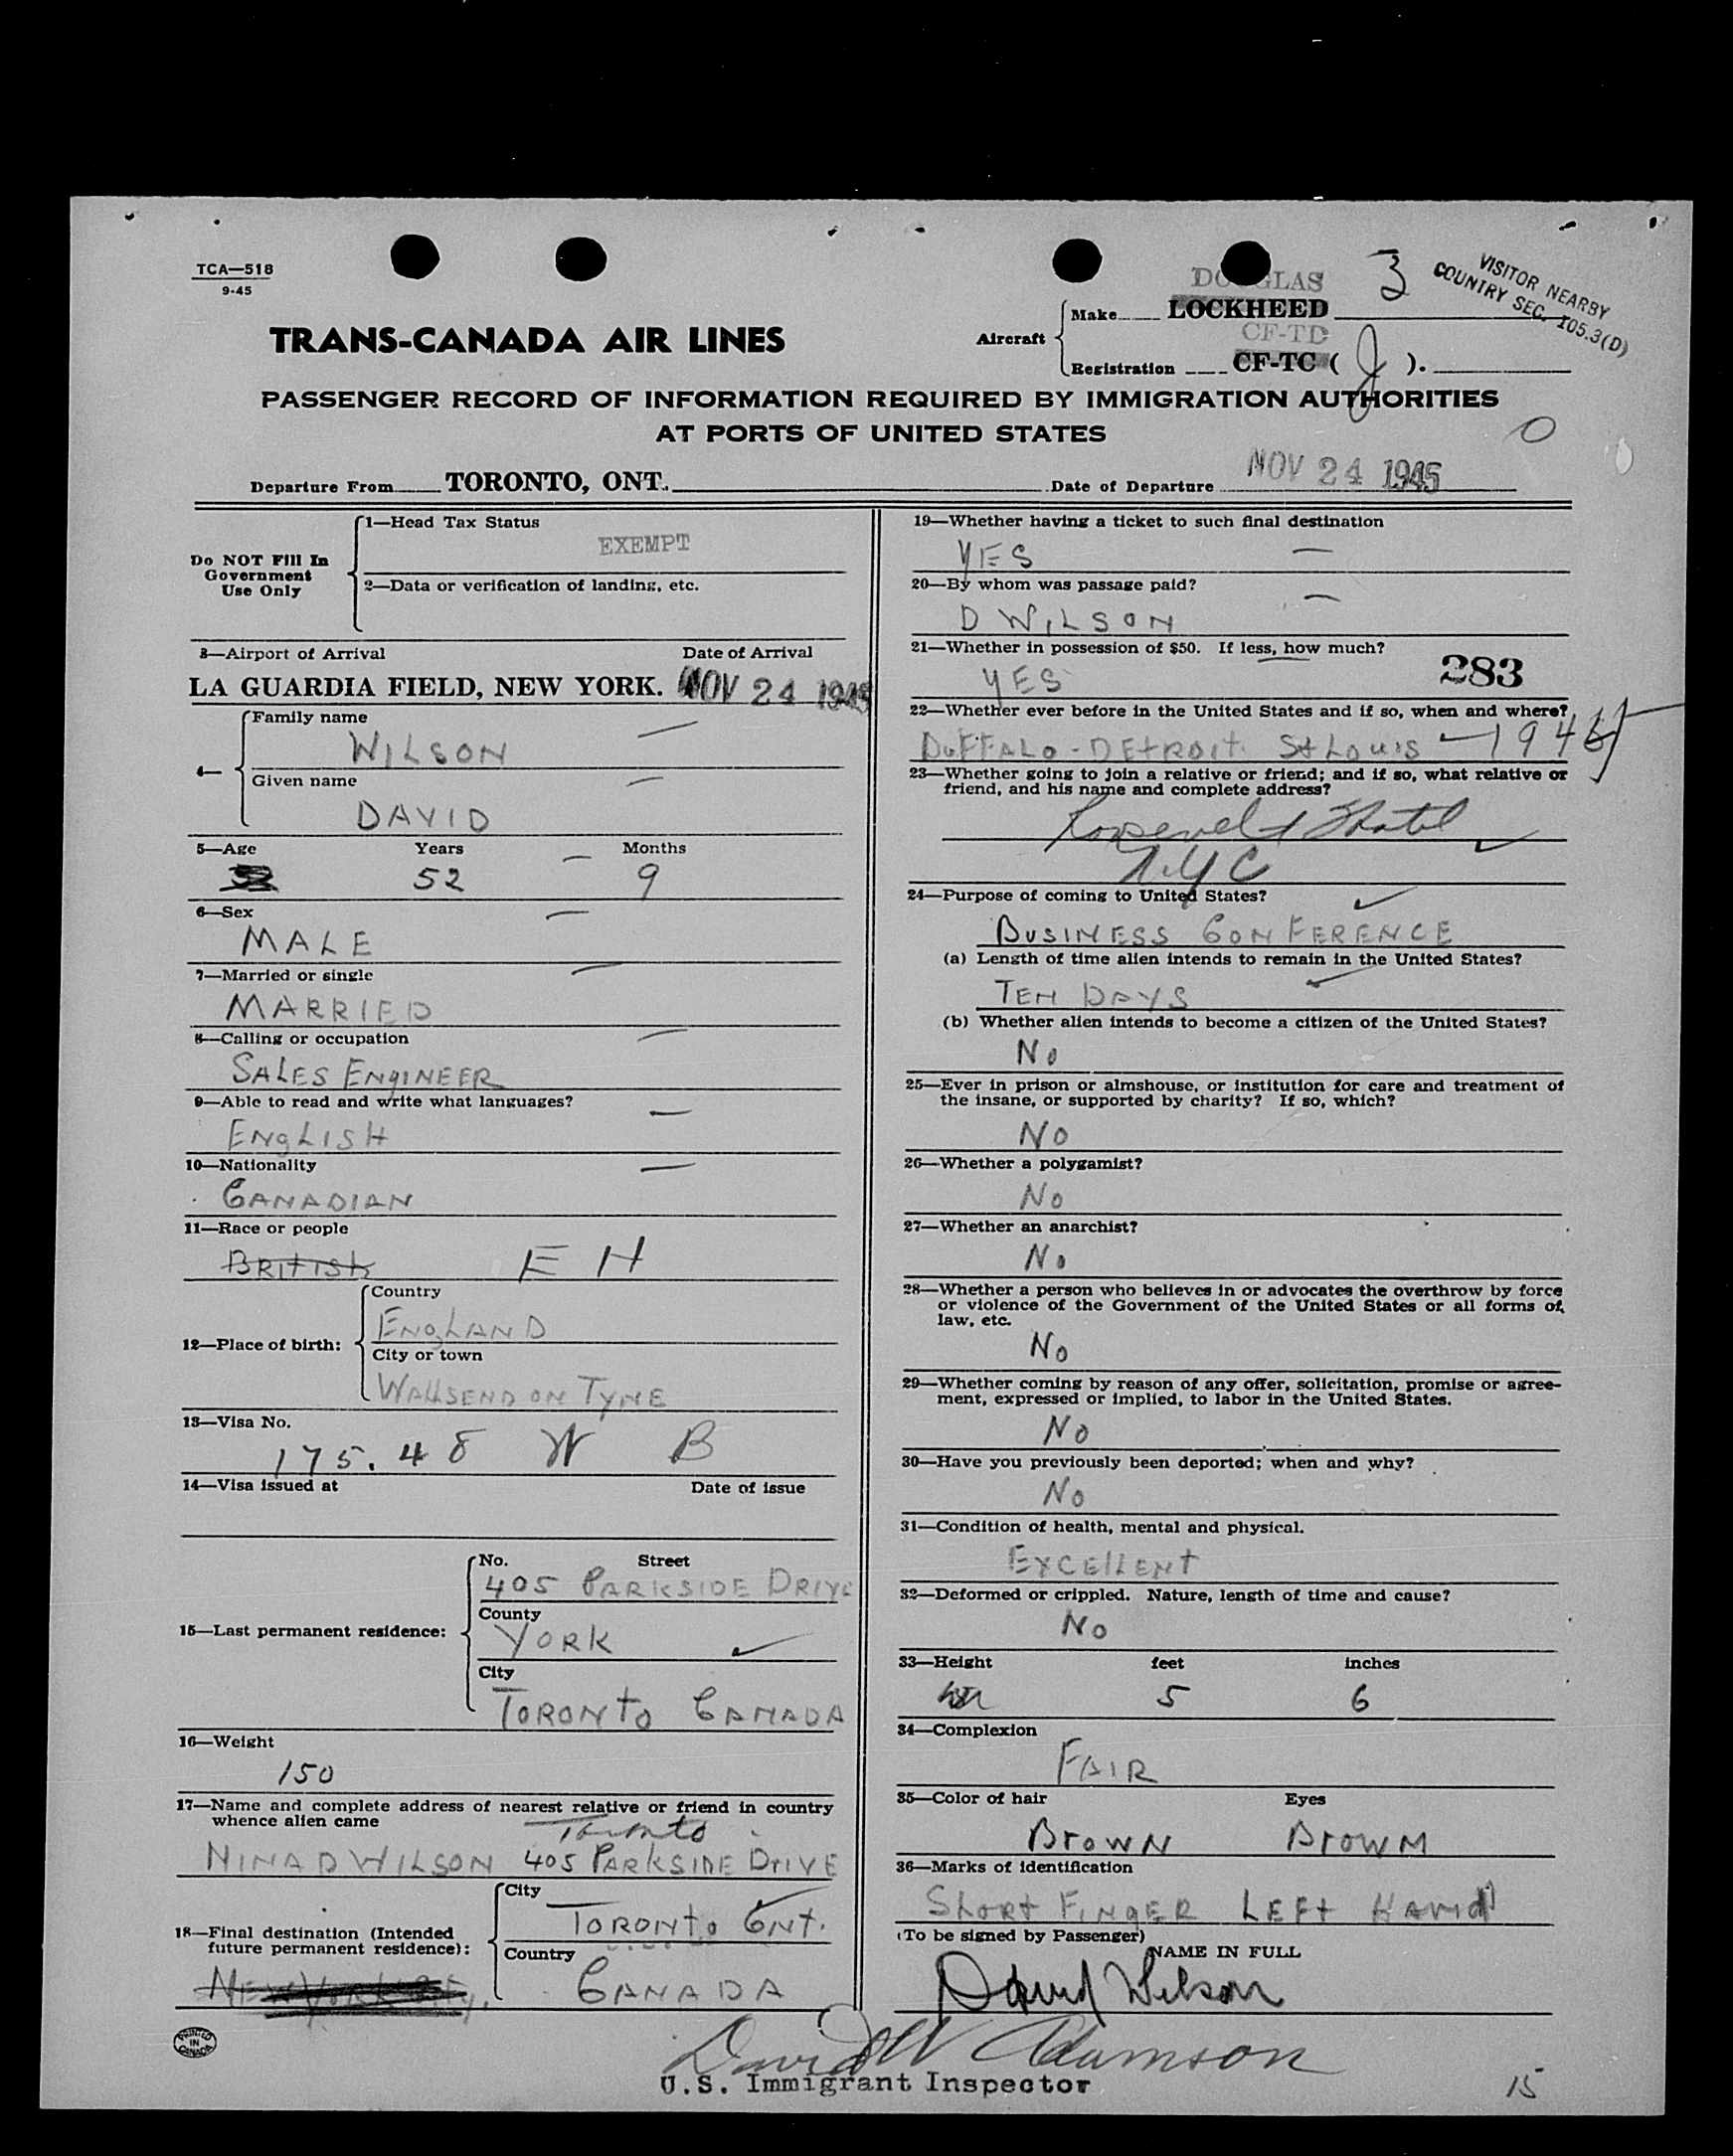 TCA—518
9-45
DOUGLAS
3
VISITOR NEARBY
COUNTRY SEC. 105.3(D)
TRANS-CANADA AIR LINES
Aircraft
Make LOCKHEED
CF-TD
Registration CF-TC ( J ).
PASSENGER RECORD OF INFORMATION REQUIRED BY IMMIGRATION AUTHORITIES
AT PORTS OF UNITED STATES
O
Departure From TORONTO, ONT. Date of Departure NOV 24 1945
Do NOT Fill In
Government
Use Only
1—Head Tax Status
EXEMPT
2—Data or verification of landing, etc.
3—Airport of Arrival Date of Arrival
LA GUARDIA FIELD, NEW YORK. NOV 24 1945
4—
Family name
WILSON
Given name
DAVID
5—Age Years Months
52 9
6—Sex
MALE
7—Married or single
MARRIED
8—Calling or occupation
SALES ENgINEER
9—Able to read and write what languages?
ENgLISH
10—Nationality
CANADIAN
11—Race or people
BRITISH E H
12—Place of birth:
Country
ENgLAND
City or town
WALLSEND ON TyNE
13—Visa No.
175.48 W B
14—Visa issued at Date of issue
15—Last permanent residence:
No. Street
405 PARKSIDE DRIVE
County
YORK
City
TORONTO CANADA
16—Weight
150
17—Name and complete address of nearest relative or friend in country
whence alien came
Toronto
NINA D WILSON 405 PARKSIDE DrIVE
18—Final destination (Intended
future permanent residence):
NEW YORK CITY.
City
TORONTO ONT.
Country
CANADA
PRINTED
IN
CANADA
19—Whether having a ticket to such final destination
YES
20—By whom was passage paid?
D WILSON
21—Whether in possession of $50. If less, how much?
YES
283
22—Whether ever before in the United States and if so, when and where?
BUFFALO - DETROIT. St LOUIS - 1945
23—Whether going to join a relative or friend; and if so, what relative or
friend, and his name and complete address?
Roosevelt Hotel
N.Y C
24—Purpose of coming to United States?
BUSINESS CONFERENCE
(a) Length of time alien intends to remain in the United States?
TEN DAYS
(b) Whether alien intends to become a citizen of the United States?
No
25—Ever in prison or almshouse, or institution for care and treatment of
the insane, or supported by charity? If so, which?
NO
26—Whether a polygamist?
No
27—Whether an anarchist?
No
28—Whether a person who believes in or advocates the overthrow by force
or violence of the Government of the United States or all forms of
law, etc.
No
29—Whether coming by reason of any offer, solicitation, promise or agree-
ment, expressed or implied, to labor in the United States.
No
30—Have you previously been deported; when and why?
No
31—Condition of health, mental and physical.
EXCEllENT
32—Deformed or crippled. Nature, length of time and cause?
No
33—Height feet inches
5 6
34—Complexion
FAIR
35—Color of hair Eyes
BroWN BroWN
36—Marks of identification
Short FINgER LEFt HAND
(To be signed by Passenger)
NAME IN FULL
David Wilson
David W Adamson
U.S. Immigrant Inspector
15